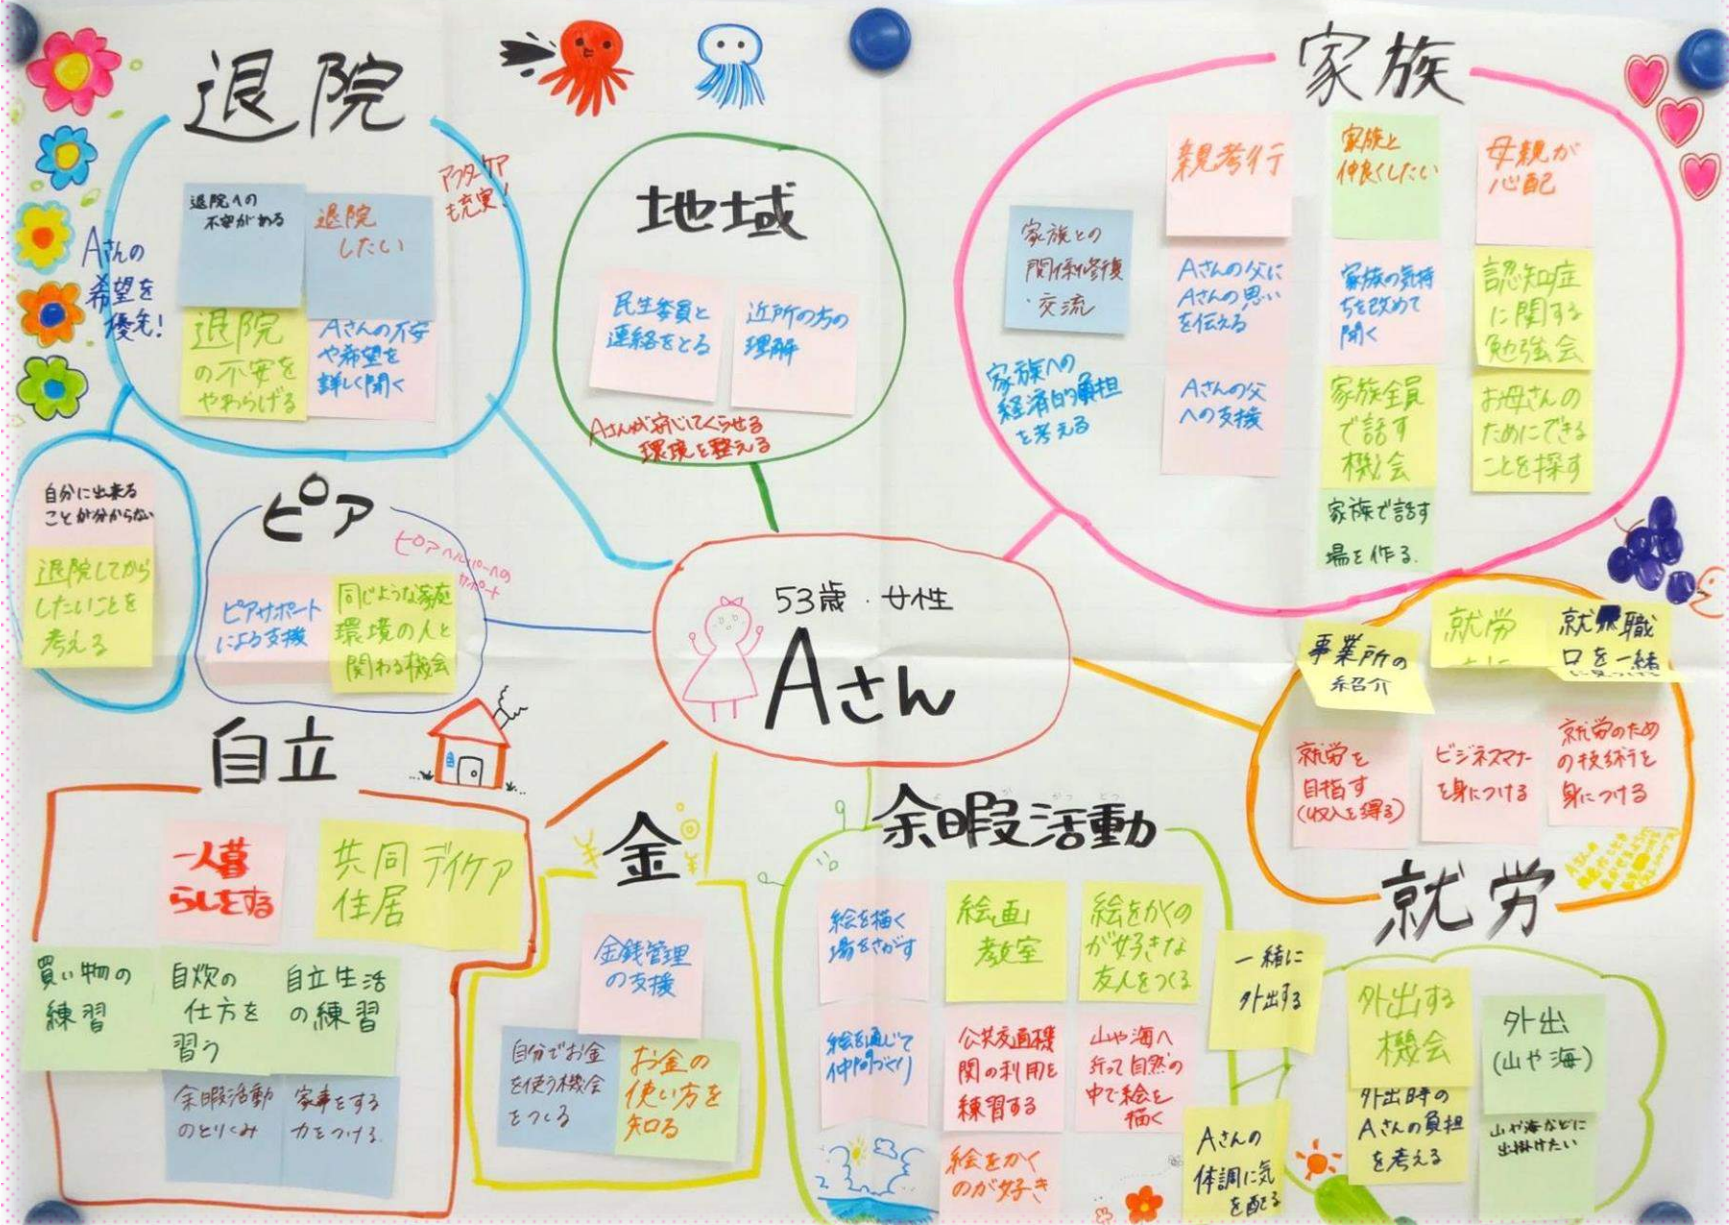 退院
アフターケア
も充実!
退院への
不安がある
退院
したい
Aさんの
希望を
優先!
退院
の不安を
やわらげる
Aさんの不安
や希望を
詳しく聞く
自分に出来る
ことが分からない
退院してから
したいことを
考える
地域
民生委員と
連絡をとる
近所の方の
理解
Aさんが安心してくらせる
環境を整える
家族
親孝行
家族と
仲良くしたい
母親が
心配
家族との
関係修復
・交流
Aさんの父に
Aさんの思い
を伝える
家族の気持
ちを改めて
聞く
認知症
に関する
勉強会
家族への
経済的負担
を考える
Aさんの父
への支援
家族全員
で話す
機会
お母さんの
ためにできる
ことを探す
家族で話す
場を作る.
ピア
ピアヘルパーへの
サポート
ピアサポート
による支援
同じような家庭
環境の人と
関わる機会
53歳・女性
Aさん
事業所の
紹介
就労
就職
口を一緒
に見つける
就労を
目指す
(収入を得る)
ビジネスマナー
を身につける
就労のため
の技術を
身につける
就労
自立
一人暮
らしをする
共同
住居
デイケア
買い物の
練習
自炊の
仕方を
習う
自立生活
の練習
余暇活動
のとりくみ
家事をする
力をつける.
金
金銭管理
の支援
自分でお金
を使う機会
をつくる
お金の
使い方を
知る
余暇活動
絵を描く
場をさがす
絵画
教室
絵をかくの
が好きな
友人をつくる
絵を通じて
仲間づくり
公共交通機
関の利用を
練習する
山や海へ
行って自然の
中で絵を
描く
絵をかく
のが好き
一緒に
外出する
Aさんの
体調に気
を配る
外出する
機会
外出
(山や海)
外出時の
Aさんの負担
を考える
山や海などに
出掛けたい